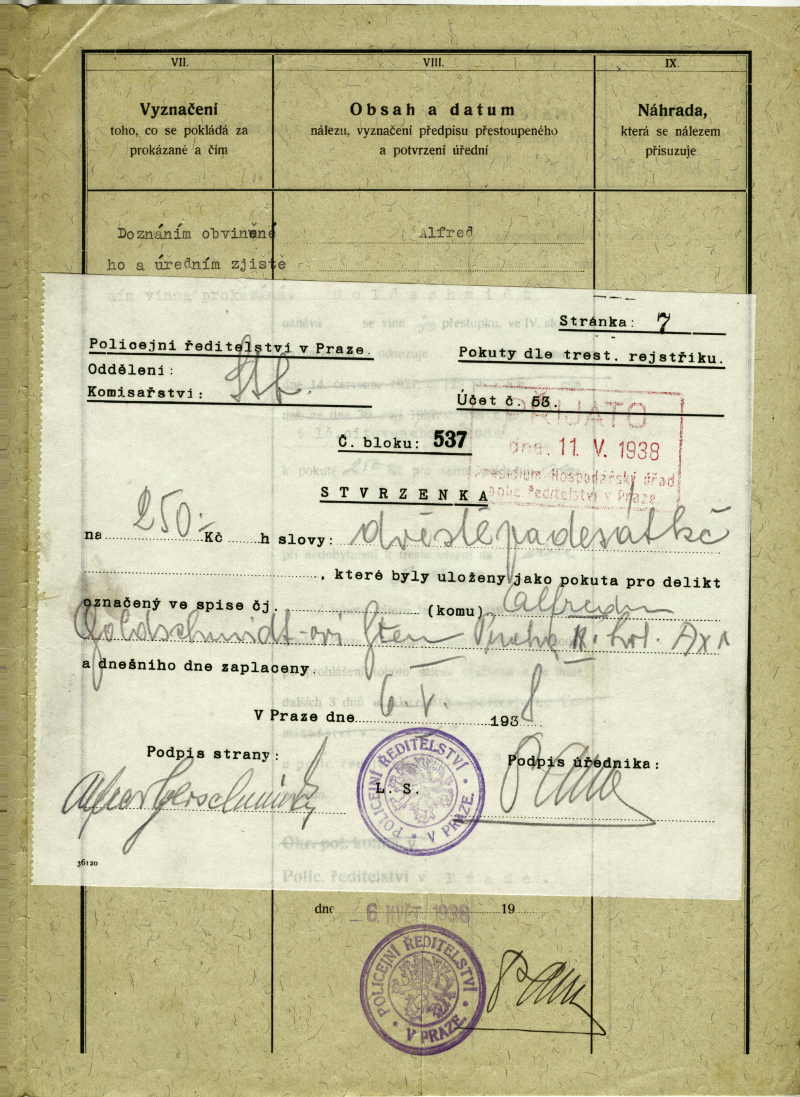 VII.
VIII.
IX.
Vyznačení
toho, co se pokládá za
prokázané a čím
Obsah a datum
nálezu, vyznačení předpisu přestoupeného
a potvrzení úřední
Náhrada,
která se nálezem
přisuzuje
Doznáním obviněné
Alfred
ho a úředním zjiště
ním vinna prokázána. Goldschmidt
Stránka: 7
Policejní ředitelství v Praze.
Pokuty dle trest. rejstříku.
Oddělení:
Komisařství:
Účet č. 53.
PŘIJATO
dne 11 V. 1938
Presidium Hospodářský úřad
polic. ředitelství v Praze
Č. bloku: 537
STVRZENKA
na 250.- Kč h slovy: dvěstěpadesátkč
, které byly uloženy jako pokuta pro delikt
označený ve spise čj. (komu) Alfredu
Goldschmidt-ovi
a dnešního dne zaplaceny.
6. V.
V Praze dne 1938
Podpis strany:
Podpis úředníka:
L. S.
POLICEJNÍ ŘEDITELSTVÍ V PRAZE
36120
Okr. pol. komis. v
Polic. ředitelství v Praze.
dne 6. KVĚT. 1938 19
POLICEJNÍ ŘEDITELSTVÍ V PRAZE